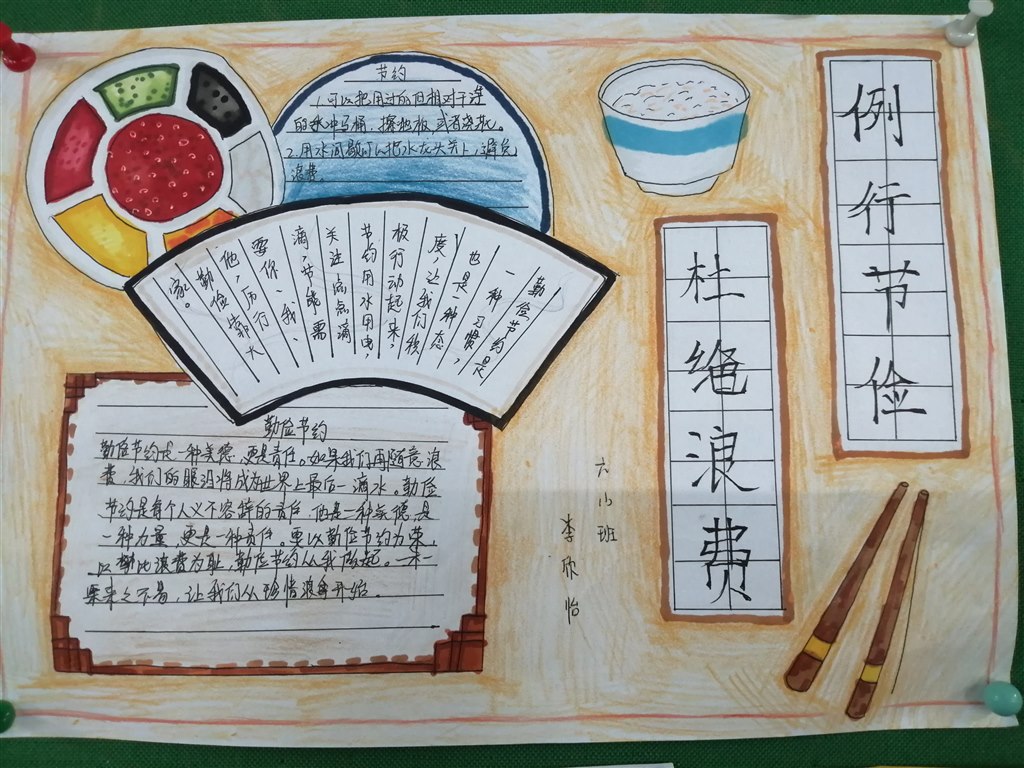 节约
1.可以把用过的回相对干净
的水冲马桶，擦地板，或者浇花。
2.用水间歇可以把水龙头关上，避免
浪费。
勤俭节约是
一种习惯，
也是一种态
度，让我们积
极行动起来，
节约用水用电，
关注点点滴
滴，节能需
要你、我、
他，厉行
勤俭靠大
家。
勤俭节约
勤俭节约是一种美德，更是责任。如果我们再随意浪
费，我们的眼泪将成为世界上最后一滴水。勤俭
节约是每个人义不容辞的责任，他是一种美德，是
一种力量，更是一种责任。要以勤俭节约为荣，
以浪费为耻，勤俭节约从我做起。一米一
粟来之不易，让我们从珍惜粮食开始。
例行节俭
杜绝浪费
六小班
李欣怡